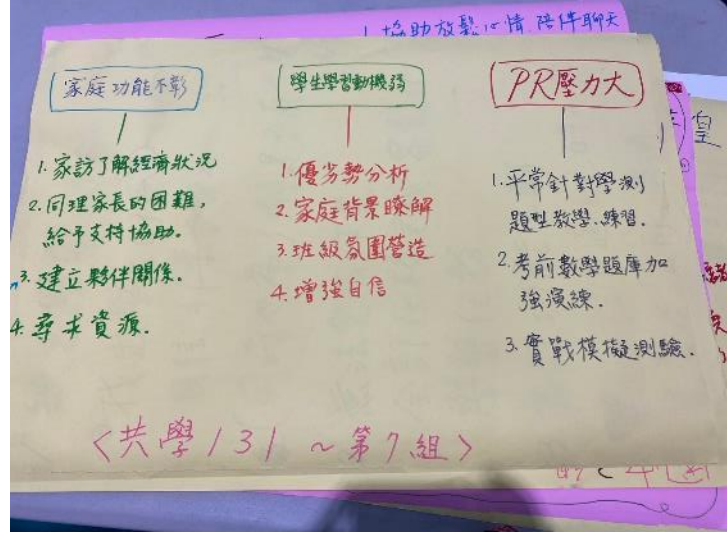 1.協助放鬆心情.陪伴聊天
家庭功能不彰
1.家訪了解經濟狀況
2.同理家長的困難,
給予支持協助.
3.建立夥伴關係.
4.尋求資源.
學生學習動機弱
1.優劣勢分析
2.家庭背景瞭解
3.班級氛圍營造
4.增強自信
PR壓力大
1.平常針對學測
題型教學.練習.
2.考前數學題庫加
強演練.
3.實戰模擬測驗.
<共學131~第7組>